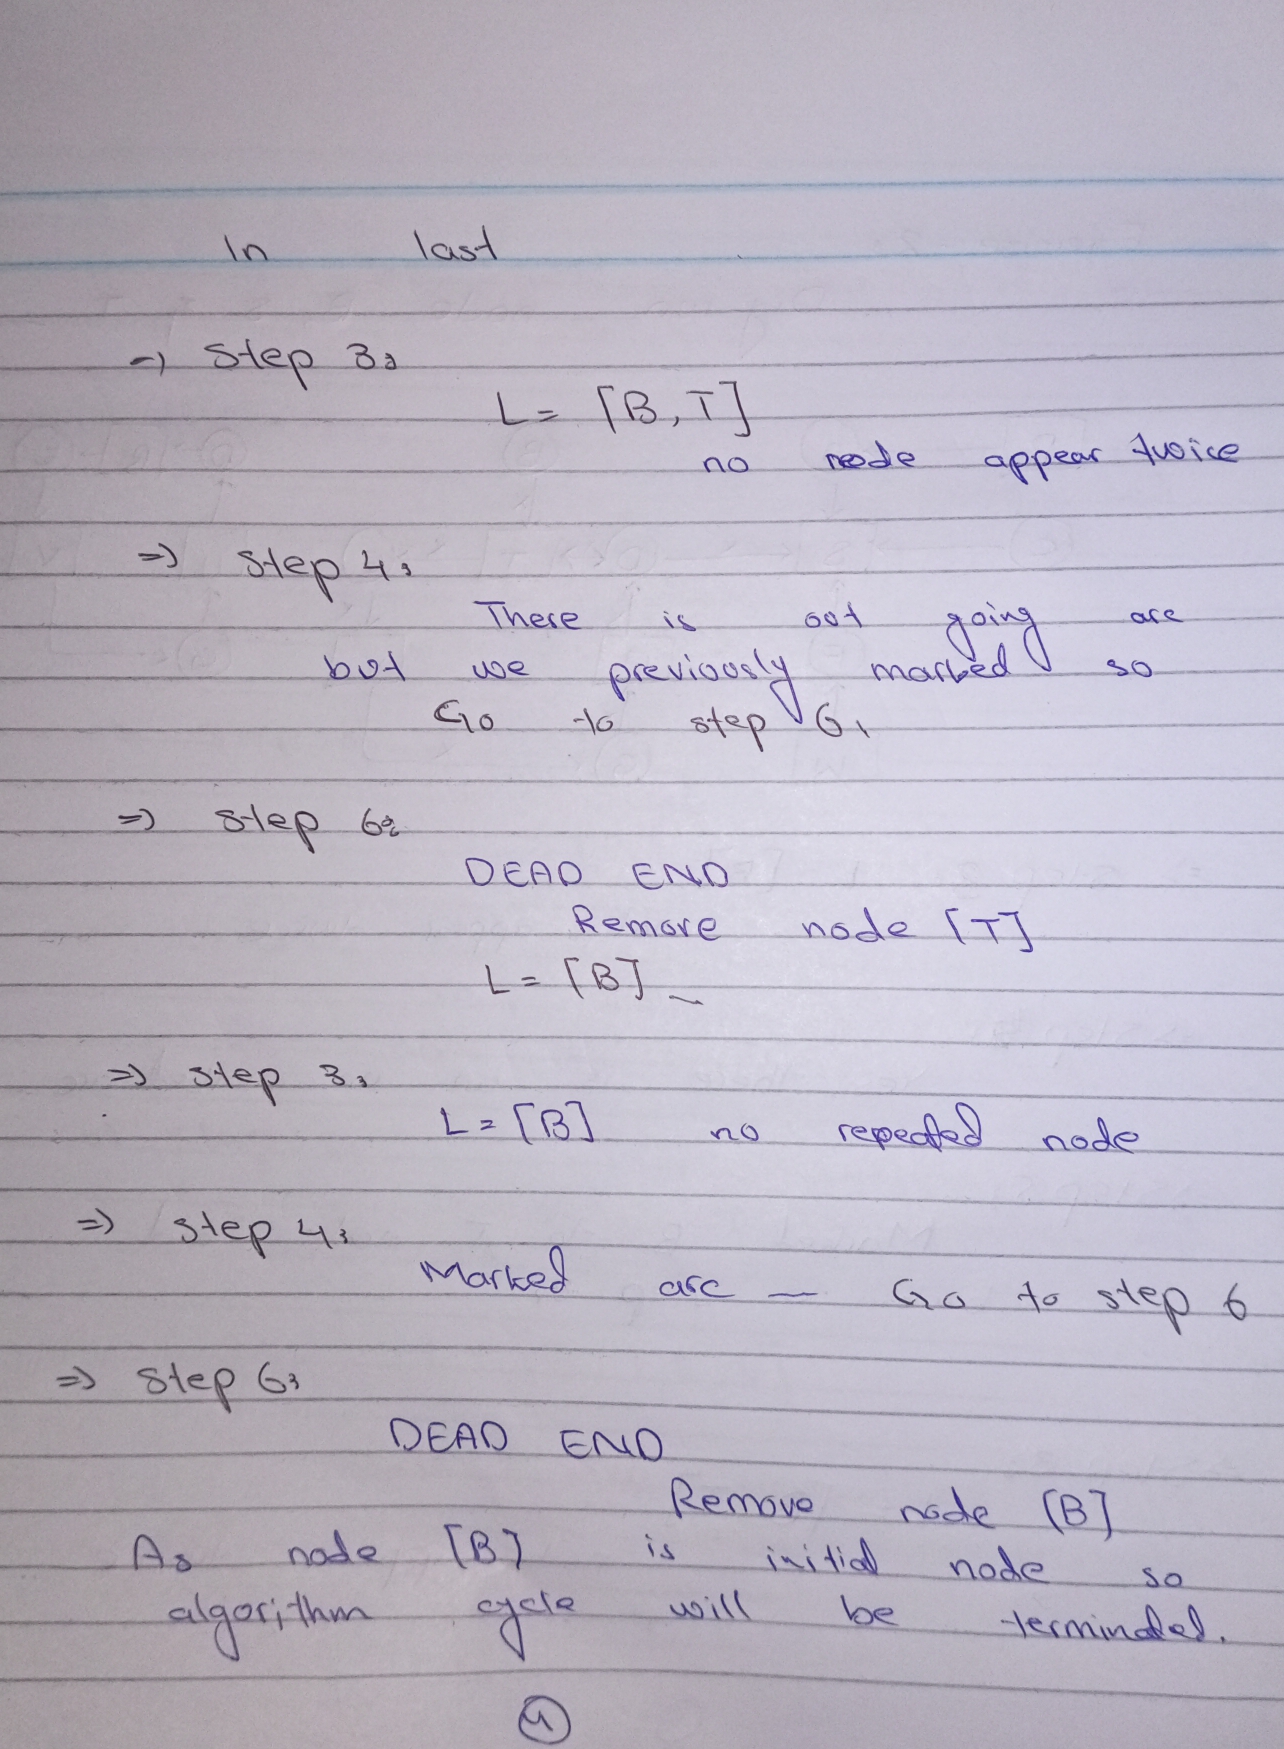 In last
=) Step 3:
L= [B,T]
no node appear twice
=) Step 4:
There is out going arc
but we previously marked so
Go to step 6,
=) Step 6:
DEAD END
Remove node [T]
L= [B]
=) Step 3:
L= [B] no repeated node
=) Step 4:
Marked arc — Go to step 6
=) Step 6:
DEAD END
Remove node [B]
As node [B] is initial node so
algorithm cycle will be terminated.
4